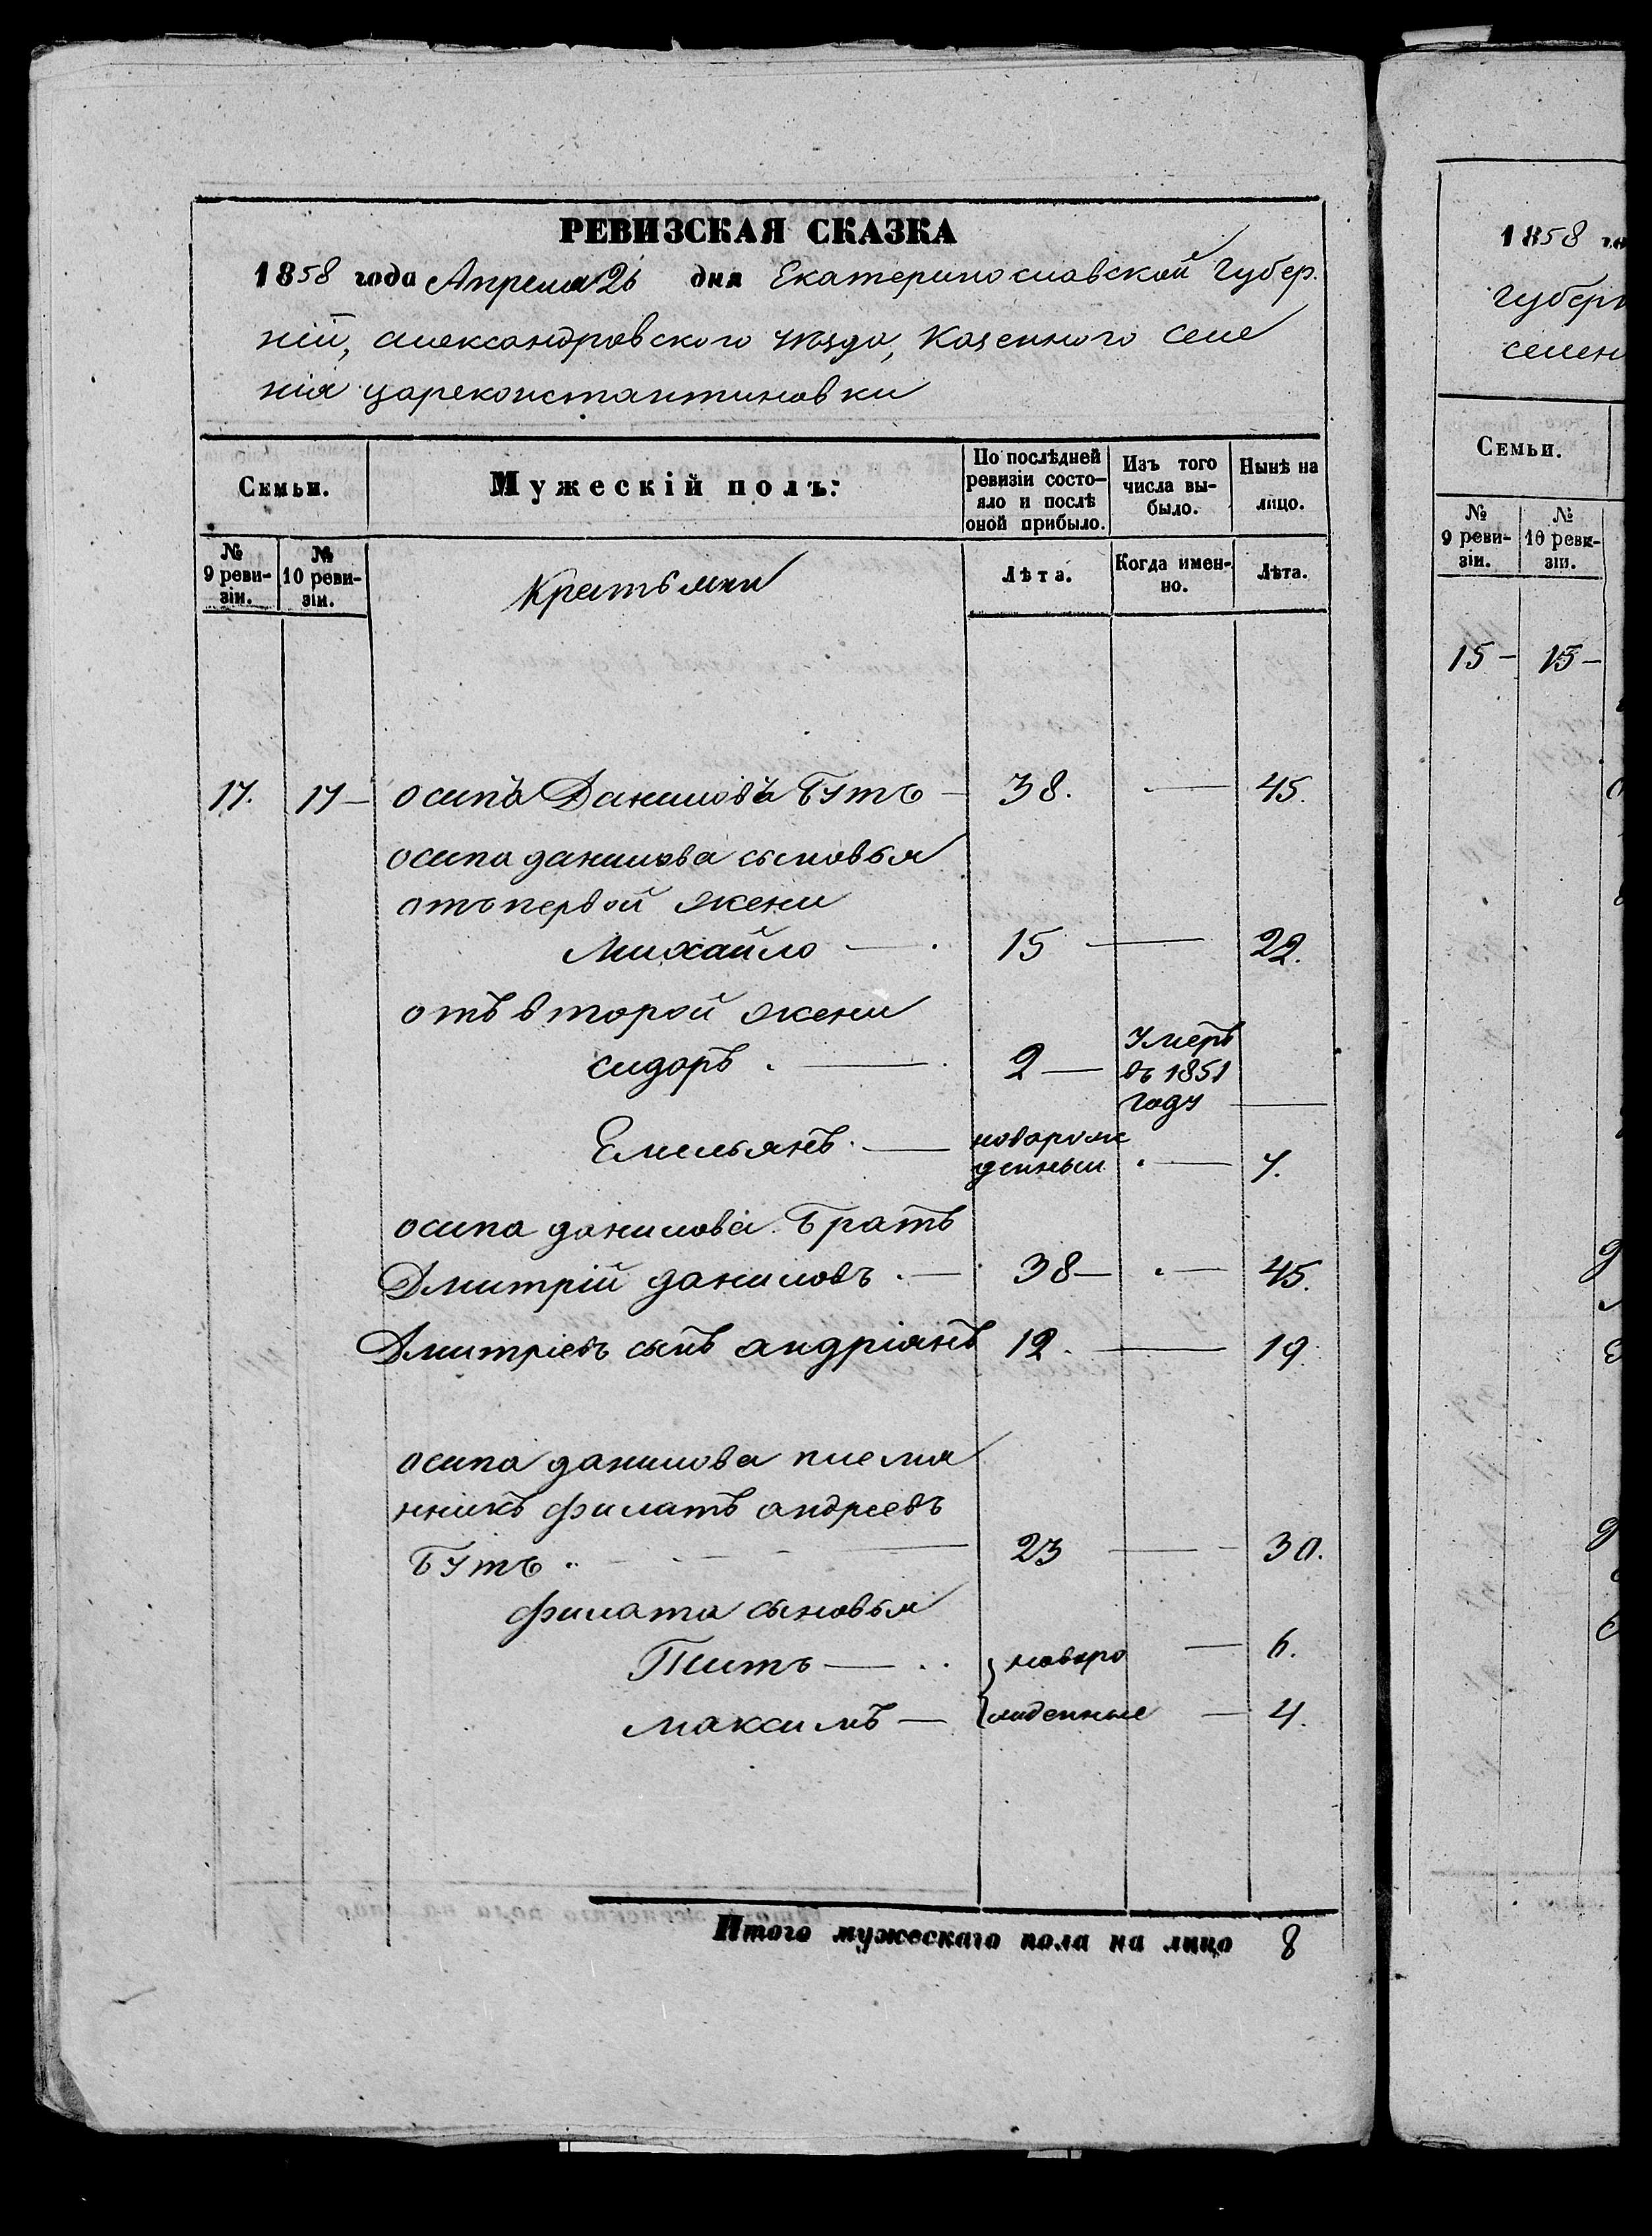 РЕВИЗСКАЯ СКАЗКА
1858 года Апреля 26 дня Екатеринославской Губер.
ніи, александровского уѣзда, Казенного Селе
нія цареконстантиновки
Семьи.
Мужескій полъ:
По послѣдней ревизіи состо-яло и послѣ оной прибыло.
Изъ того числа вы-было.
Нынѣ на лицо.
№ 9 реви-зіи.
№ 10 реви-зіи.
Лѣта.
Когда имен-но.
Лѣта.
17. 17 – осипъ Даниловъ Буть – 38. – 45.
осипа данилова сыновья
отъ первой жены
Михайло – 15 – 22.
отъ второй жены
сидоръ . – 2 – Умеръ въ 1851 году –
Емельянъ. – новорож денный . – 7.
осипа данилова братъ
Дмитрій даниловъ . – 38 – . – 45.
Дмитріевъ сынъ андріянъ 12. – 19.
осипа данилова племя
нникъ филатъ андреевъ
Буть .. – 23 – 30.
филата сыновья
Титъ – .. новоро – 6.
максимъ – жденные – 4.
Итого мужескаго пола на лицо 8
1858 го
губерн
селен
Семьи.
№ 9 реви-зіи.
№ 10 реви-зіи.
15 – 15 –